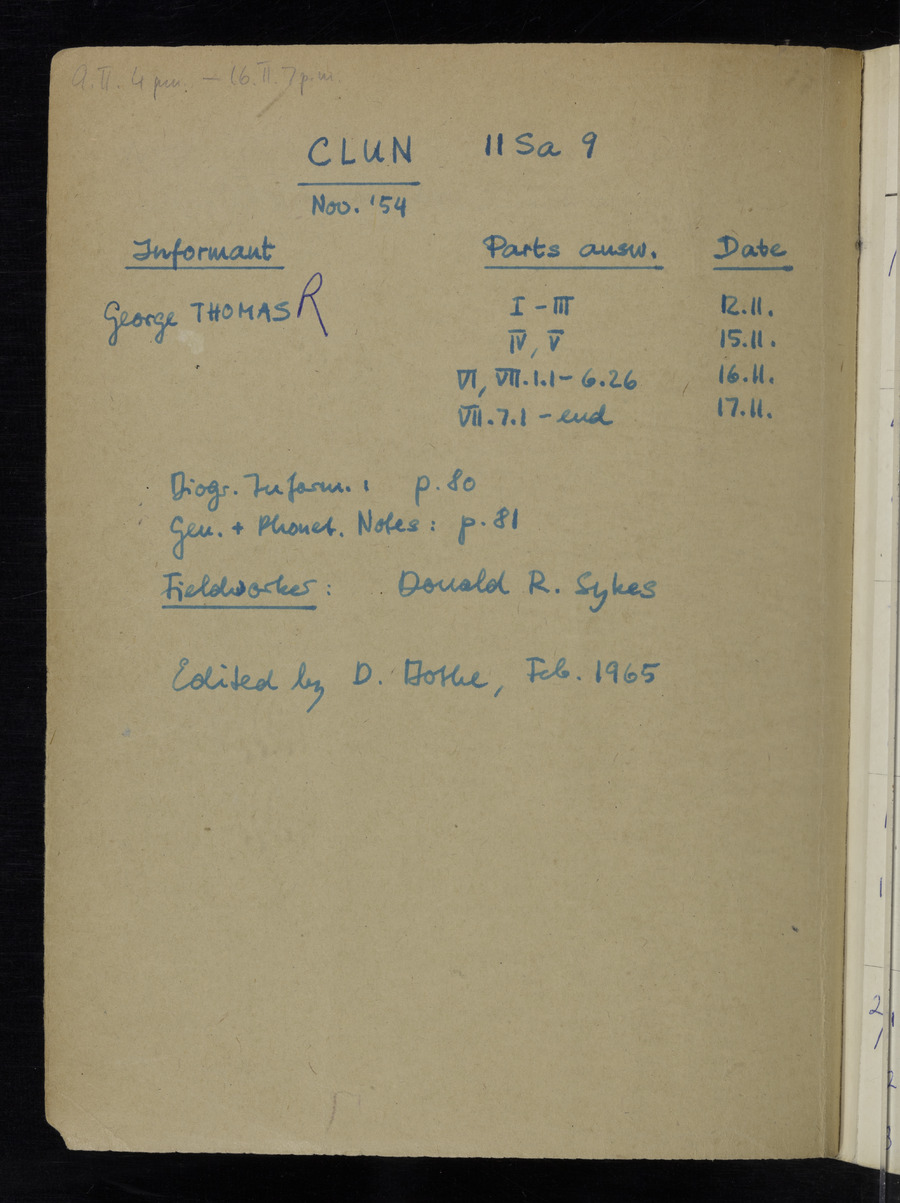 9.II. 4 pm. – 16.II. 7 p.m.
CLUN 11 Sa 9
Nov. '54
Informant Parts answ. Date
George THOMAS R I – III 12.11.
IV, V 15.11.
VI, VII.1.1 – 6.26 16.11.
VII.7.1 – end 17.11.
Biogr. Inform.: p. 80
Gen. + Phonet. Notes: p. 81
Fieldworker: Donald R. Sykes
Edited by D. Bothe, Feb. 1965
2
2
3